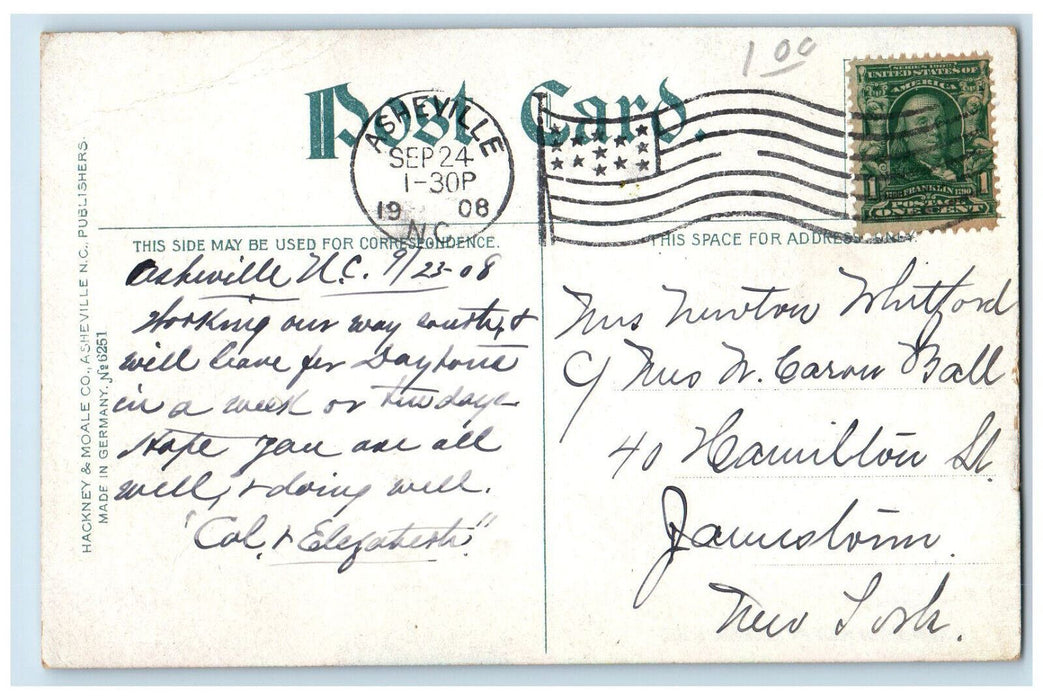 1 00
Post Card.
SERIES 1902
UNITED STATES OF
AMERICA
1 FRANKLIN 1790 1
POSTAGE
ONE CENT
ASHEVILLE
SEP 24
1-30P
19 08
N.C.
THIS SIDE MAY BE USED FOR CORRESPONDENCE.
THIS SPACE FOR ADDRESS ONLY.
HACKNEY & MOALE CO., ASHEVILLE N.C., PUBLISHERS.
MADE IN GERMANY. No 6251
Asheville N.C. 9/23-08
Working our way south, &
will leave for Daytona
in a week or days
Hope you are all
well, & doing well.
"Col. & Elizabeth"
Mrs Newton Whitford
c/ Mrs W. Caron Ball
40 Hamilton St
Jamestown.
New York.